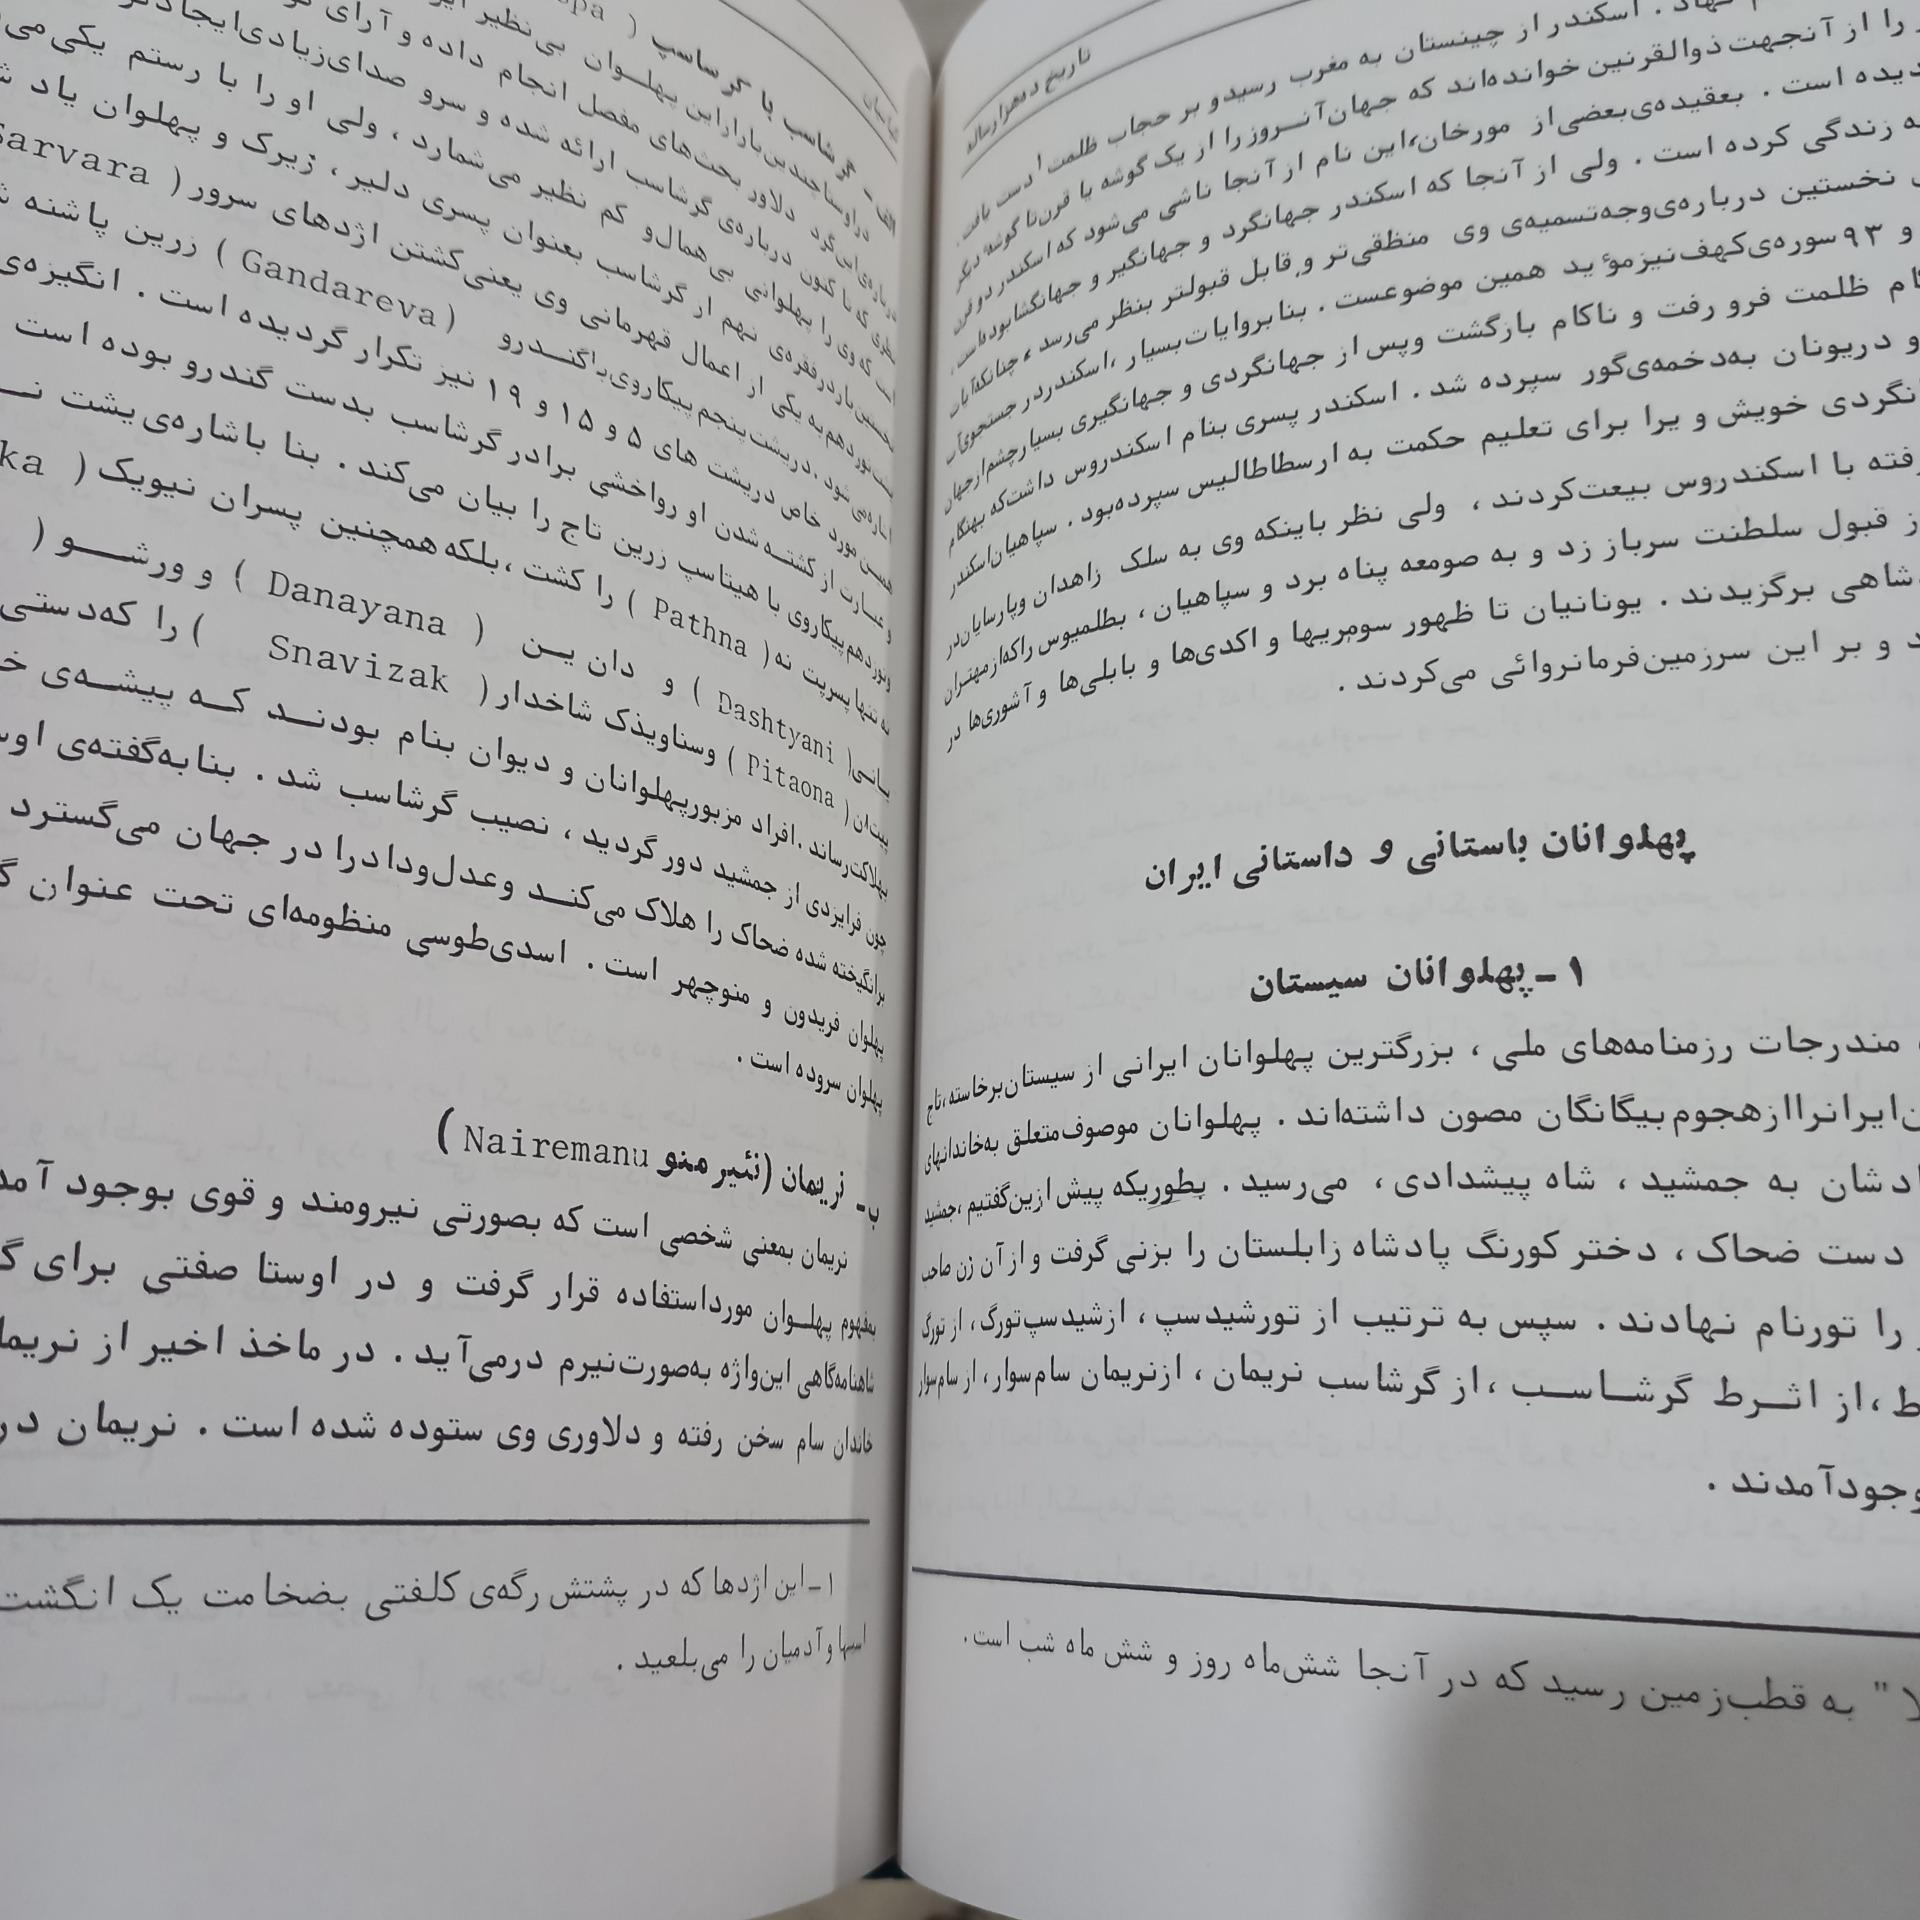 تاریخ ده‌هزار ساله
نهاد . اسکندر از چینستان به مغرب رسید و بر حجاب ظلمت دست یافت .
را از آنجهت ذوالقرنین خوانده‌اند که جهان آنروز را از یک گوشه یا قرن تا گوشه دیگر
دیده است . بعقیده‌ی بعضی از مورخان، این نام از آنجا ناشی می‌شود که اسکندر دو قرن
زندگی کرده است . ولی از آنجا که اسکندر جهانگرد و جهانگیر و جهانگشا بوده است ،
نخستین درباره‌ی وجه تسمیه‌ی وی منطقی‌تر و قابل قبولتر بنظر می‌رسد ، چنانکه آیات
و ۹۳ سوره‌ی کهف نیز موُید همین موضوعست . بنا بروایات بسیار ، اسکندر در جستجوی آب
ظلمت فرو رفت و ناکام بازگشت و پس از جهانگردی و جهانگیری بسیار چشم از جهان
و دریونان به‌دخمه‌ی گور سپرده شد . اسکندر پسری بنام اسکندروس داشت که بهنگام
خویش و یرا برای تعلیم حکمت به ارسطاطالیس سپرده بود . سپاهیان اسکندر
با اسکندروس بیعت کردند ، ولی نظر باینکه وی به سلک زاهدان و پارسایان در
قبول سلطنت سرباز زد و به صومعه پناه برد و سپاهیان ، بطلمیوس را که از مهتران
شاهی برگزیدند . یونانیان تا ظهور سومریها و اکدی‌ها و بابلی‌ها و آشوری‌ها در
و بر این سرزمین فرمانروائی می‌کردند .
پهلوانان باستانی و داستانی ایران
۱ ـ پهلوانان سیستان
مندرجات رزمنامه‌های ملی ، بزرگترین پهلوانان ایرانی از سیستان برخاسته ، تاج
ایرانرا از هجوم بیگانگان مصون داشته‌اند . پهلوانان موصوف متعلق به‌خاندانهای
به جمشید ، شاه پیشدادی ، می‌رسید . بطوریکه پیش ازین گفتیم ، جمشید
دست ضحاک ، دختر کورنگ پادشاه زابلستان را بزنی گرفت و از آن زن صاحب
را تورنام نهادند . سپس به ترتیب از تورشیدسپ ، از شیدسپ تورگ ، از تورگ
، از اثـرط گرشـاسـب ، از گرشاسب نریمان ، از نریمان سام سوار ، از سام سوار
آمدند .
به قطب زمین رسید که در آنجا شش‌ماه روز و شش ماه شب است.
الف ـ گرشاسب یا کرساسپ (
در اوستا چندین بار از این پهلـوان بی‌نظیر
درباره‌ی این گرد دلاور بحث‌های مفصل انجام داده و آرای
که تا کنون درباره‌ی گرشاسب ارائه شده و سرو صدای زیادی
است که وی را پهلوانی بی‌همال و کم نظیر می‌شمارد ، ولی او را با رستم یکی
نخستین بار در فقره‌ی نهم از گرشاسب بعنوان پسری دلیر ، زیرک و پهلوان یاد
به یکی از اعمال قهرمانی وی یعنی کشتن اژدهای سرور ( Sarvara
اشاره می‌شود . در یشت پنجم پیکار وی با گنـدرو ( Gandareva ) زرین پاشنه
همین مورد خاص در یشت های ۵ و ۱۵ و ۱۹ نیز تکرار گردیده است . انگیزه‌ی
از کشتـه شدن اورواخشی برادر گرشاسب بدست گندرو بوده است
پیکار وی با هیتاسپ زرین تاج را بیان می‌کند . بنا باشاره‌ی یشت
نه تنها پسر پت نه ( Pathna ) را کشت ، بلکه همچنین پسران نیویک (
یانـی ( Dashtyani ) و دان یـن ( Danayana ) و ورشــو (
پیت‌ان ( Pitaona ) و سناویذک شاخدار ( Snavizak ) را که‌دستی
بهلاکت رساند . افراد مزبور پهلوانان و دیوان بنام بودنـد کـه پیشـه‌ی
چون فرایزدی از جمشید دور گردید ، نصیب گرشاسب شد . بنا به گفته‌ی
برانگیخته شده ضحاک را هلاک می‌کنـد و عدل و داد را در جهان می‌گسترد
پهلوان فریدون و منوچهر است . اسدی طوسی منظومه‌ای تحت عنوان
پهلوان سروده است .
ب ـ نریمان (نئیر منو Nairemanu )
نریمان بمعنی شخصی است که بصورتی نیرومند و قوی بوجود
بمفهوم پهلـوان مورد استفاده قرار گرفت و در اوستا صفتی برای
شاهنامه گاهی این واژه به‌صورت نیرم درمی‌آید . در ماخذ اخیر از
خاندان سام سخن رفته و دلاوری وی ستوده شده است . نریمان در
۱ ـ این اژدها که در پشتش رگه‌ی کلفتی بضخامت یک انگشت
اسبها و آدمیان را می‌بلعید .